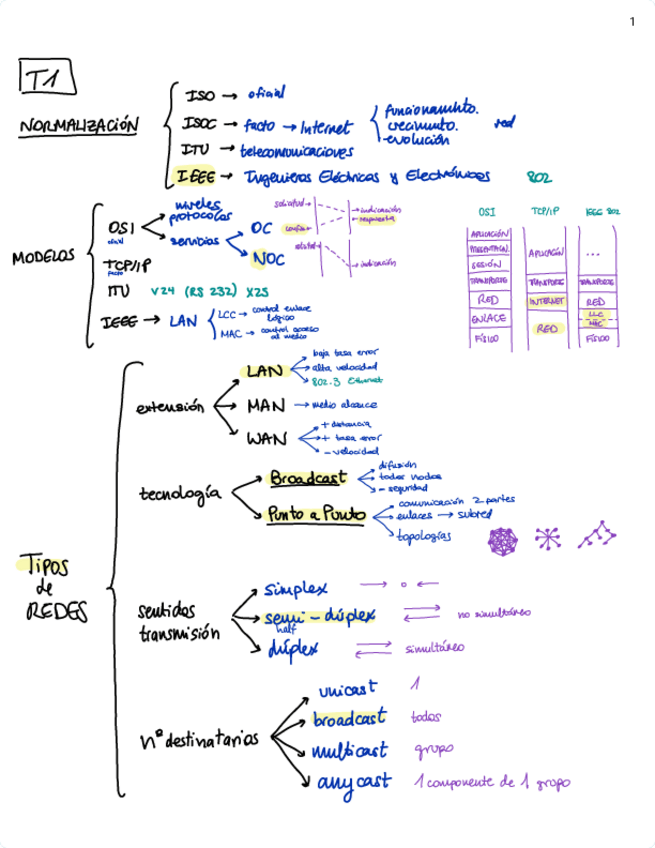 1
T1
NORMALIZACIÓN
ISO → oficial
ISOC → facto → Internet
funcionamiento.
crecimiento.
evolución
red
ITU → telecomunicaciones
IEEE → Ingenieros Eléctricos y Electrónicos 802
MODELOS
OSI
oficial
niveles
protocolos
servicios
OC
NOC
solicitud
indicación
respuesta
confirm.
solicitud
indicación
TCP/IP
facto
ITU V24 (RS 232) X25
IEEE → LAN
LCC → control enlace
lógico
MAC → control acceso
al medio
OSI TCP/IP IEEE 802
APLICACIÓN
PRESENTACN.
SESIÓN
TRANSPORTE
RED
ENLACE
FÍSICO
APLICACIÓN
TRANSPORTE
INTERNET
RED
...
TRANSPORTE
RED
LLC
MAC
FÍSICO
TIPOS
de
REDES
extensión
LAN
baja tasa error
alta velocidad
802.3 Ethernet
MAN → medio alcance
WAN
+ distancia
+ tasa error
- velocidad
tecnología
Broadcast
difusión
todos nodos
- seguridad
Punto a Punto
comunicación 2 partes
enlaces → subred
topologías
sentidos
transmisión
simplex → o ←
semi-dúplex
half
no simultáneo
dúplex
simultáneo
nº destinatarios
unicast 1
broadcast todos
multicast grupo
anycast 1 componente de 1 grupo